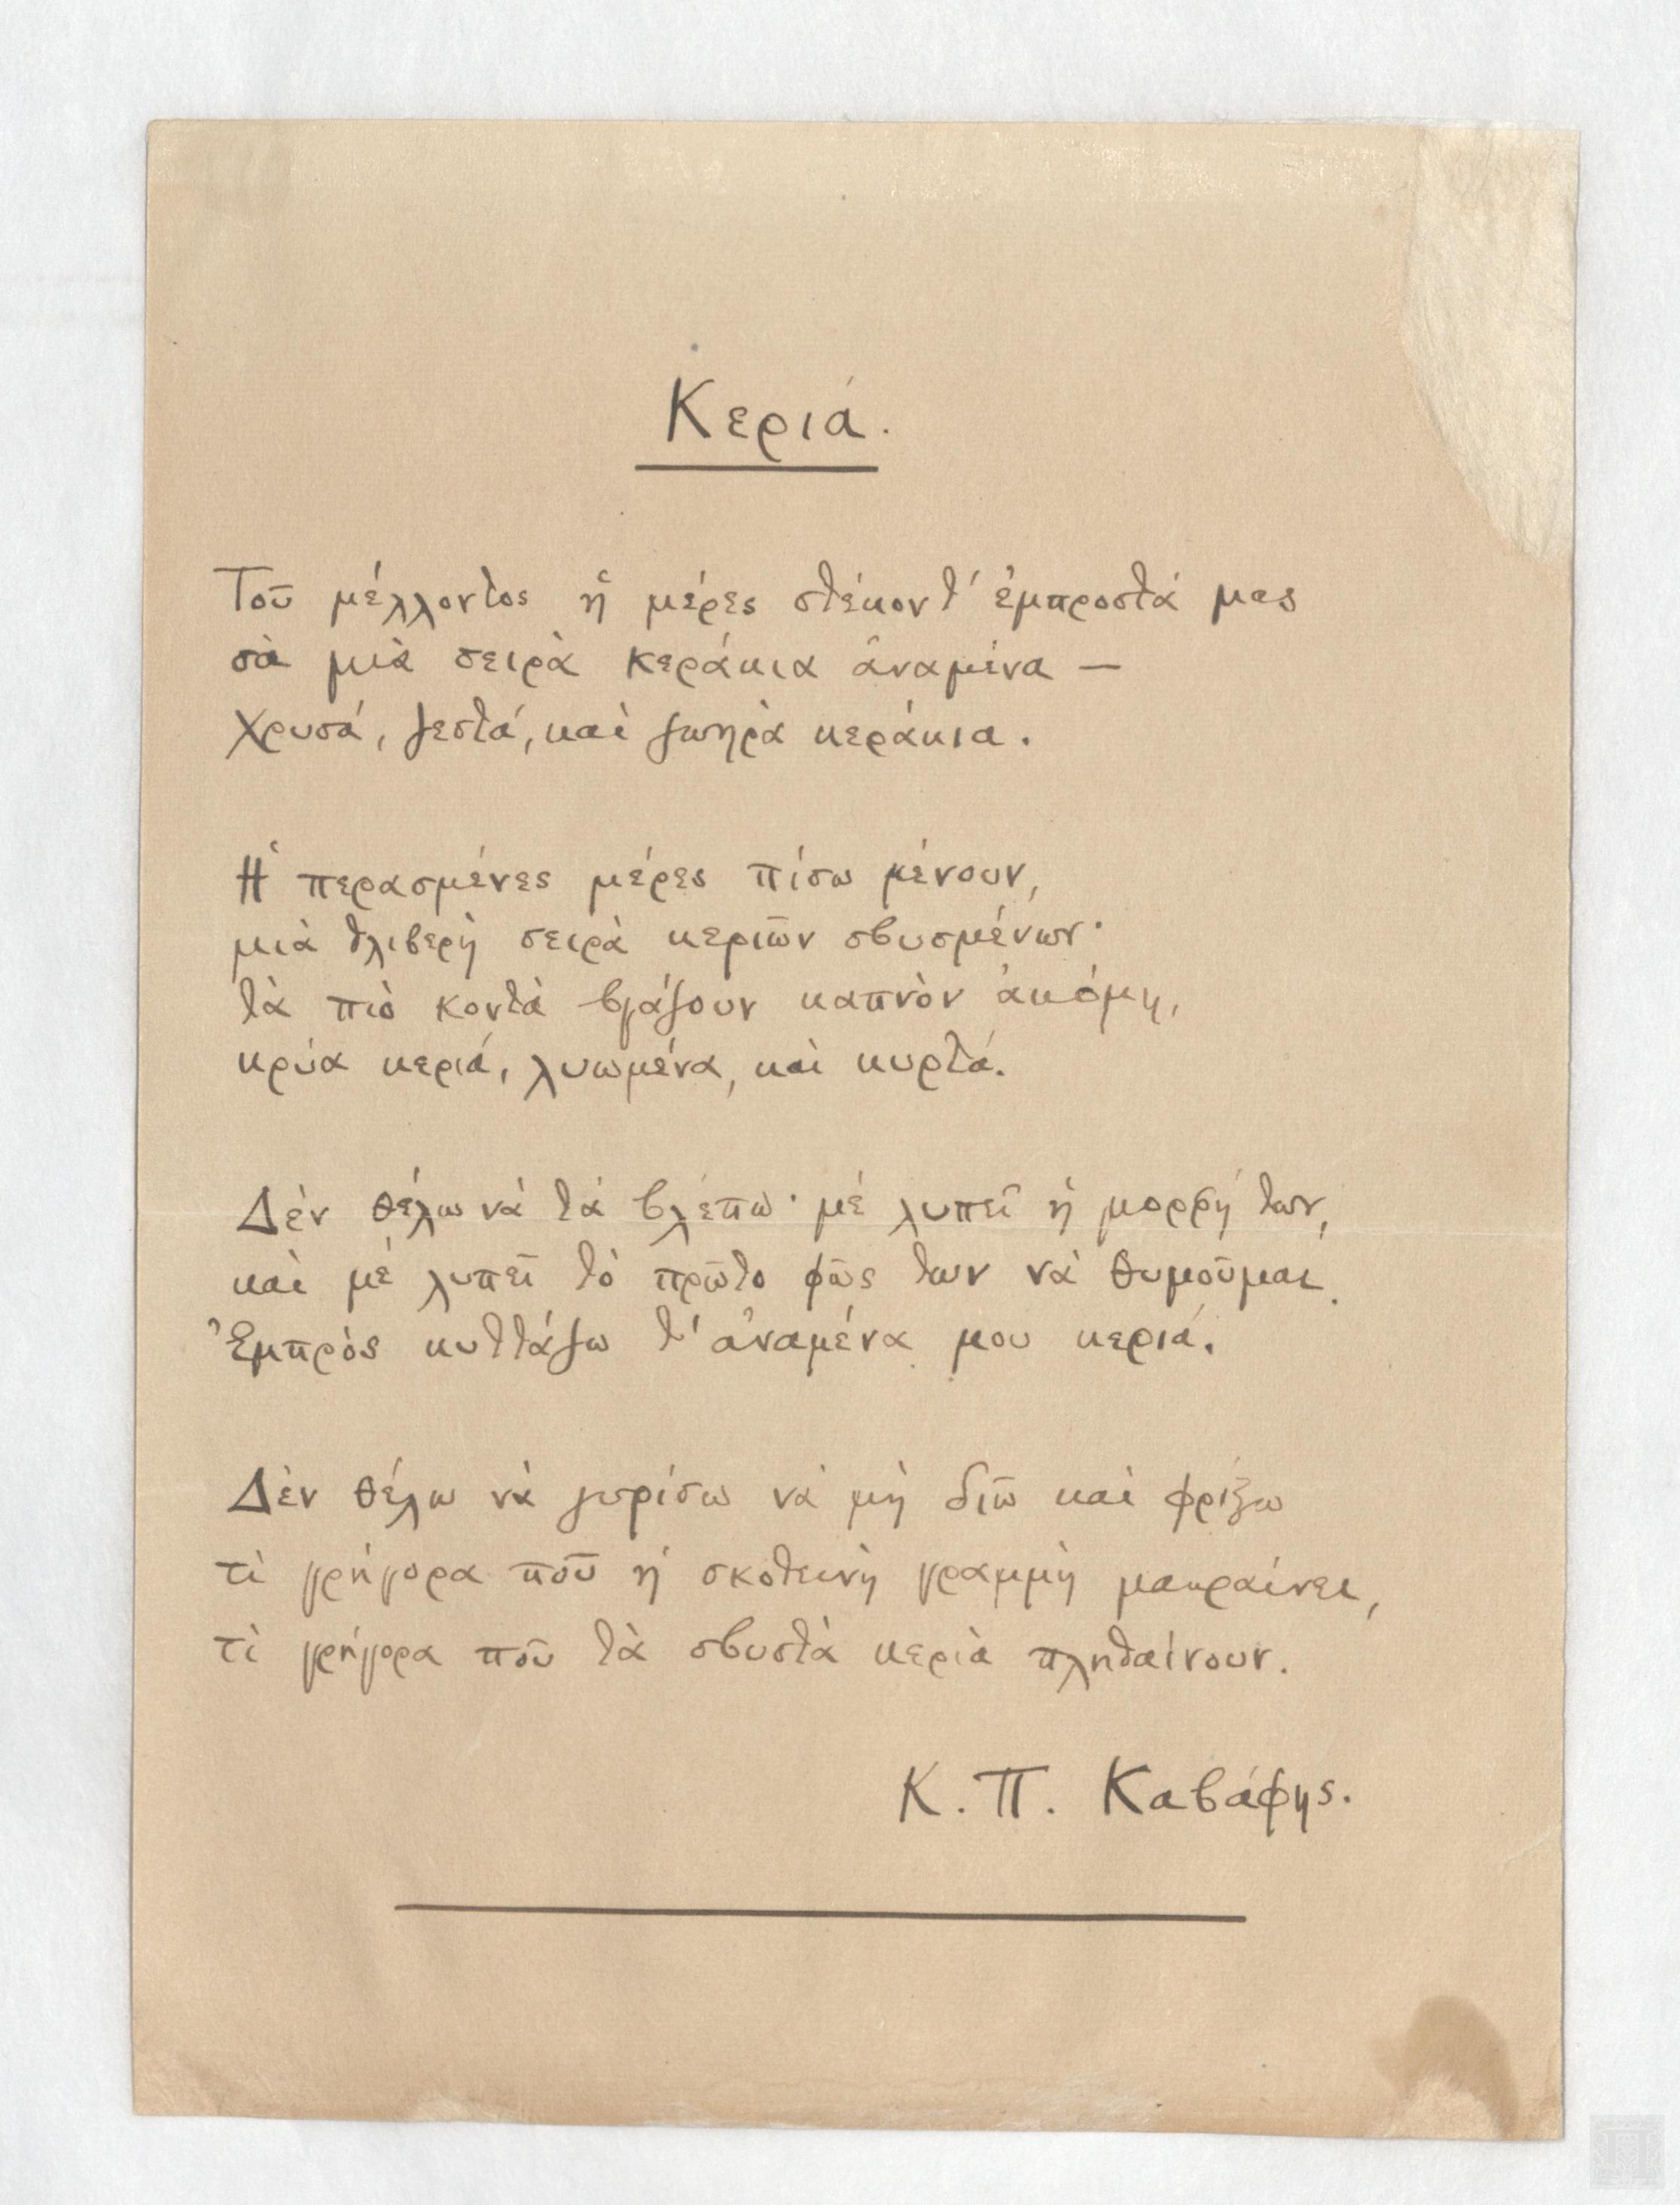 Κεριά.
Τοῦ μέλλοντος ἡ μέρες στέκοντ' ἐμπροστά μας
σὰ μιὰ σειρὰ κεράκια ἀναμένα —
Χρυσά, ζεστά, καὶ ζωηρὰ κεράκια.
Ἡ περασμένες μέρες πίσω μένουν,
μιὰ θλιβερὴ σειρὰ κεριῶν σβυσμένων·
τὰ πιὸ κοντὰ βγάζουν καπνὸν ἀκόμη,
κρύα κεριά, λυωμένα, καὶ κυρτά.
Δὲν θέλω νὰ τὰ βλέπω· μὲ λυπεῖ ἡ μορφή των,
καὶ μὲ λυπεῖ τὸ πρῶτο φῶς των νὰ θυμοῦμαι.
Ἐμπρὸς κυττάζω τ' ἀναμένα μου κεριά.
Δὲν θέλω νὰ γυρίσω νὰ μὴ διῶ καὶ φρίξω
τὶ γρήγορα ποῦ ἡ σκοτεινὴ γραμμὴ μακραίνει,
τὶ γρήγορα ποῦ τὰ σβυστὰ κεριὰ πληθαίνουν.
Κ. Π. Καβάφης.